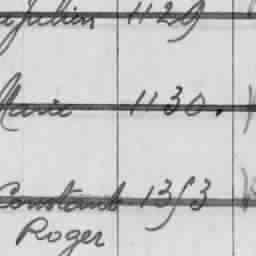 Julien 1129
Marie 1130.
Constant 1353
Roger